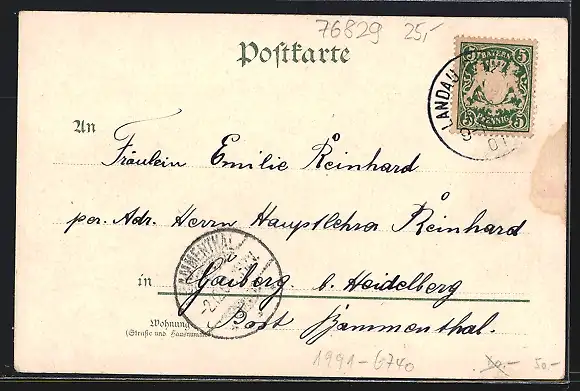 76829 25,-
Postkarte
BAYERN
5 5
5 PFENNIG 5
LANDAU
01
An
Fräulein Emilie Reinhard
per. Adr. Herrn Hauptlehrer Reinhard
BAMMENTHAL
in Gaiberg b. Heidelberg
Wohnung
(Straße und Hausnummer)
Post Bammenthal.
1991-6740
50.-